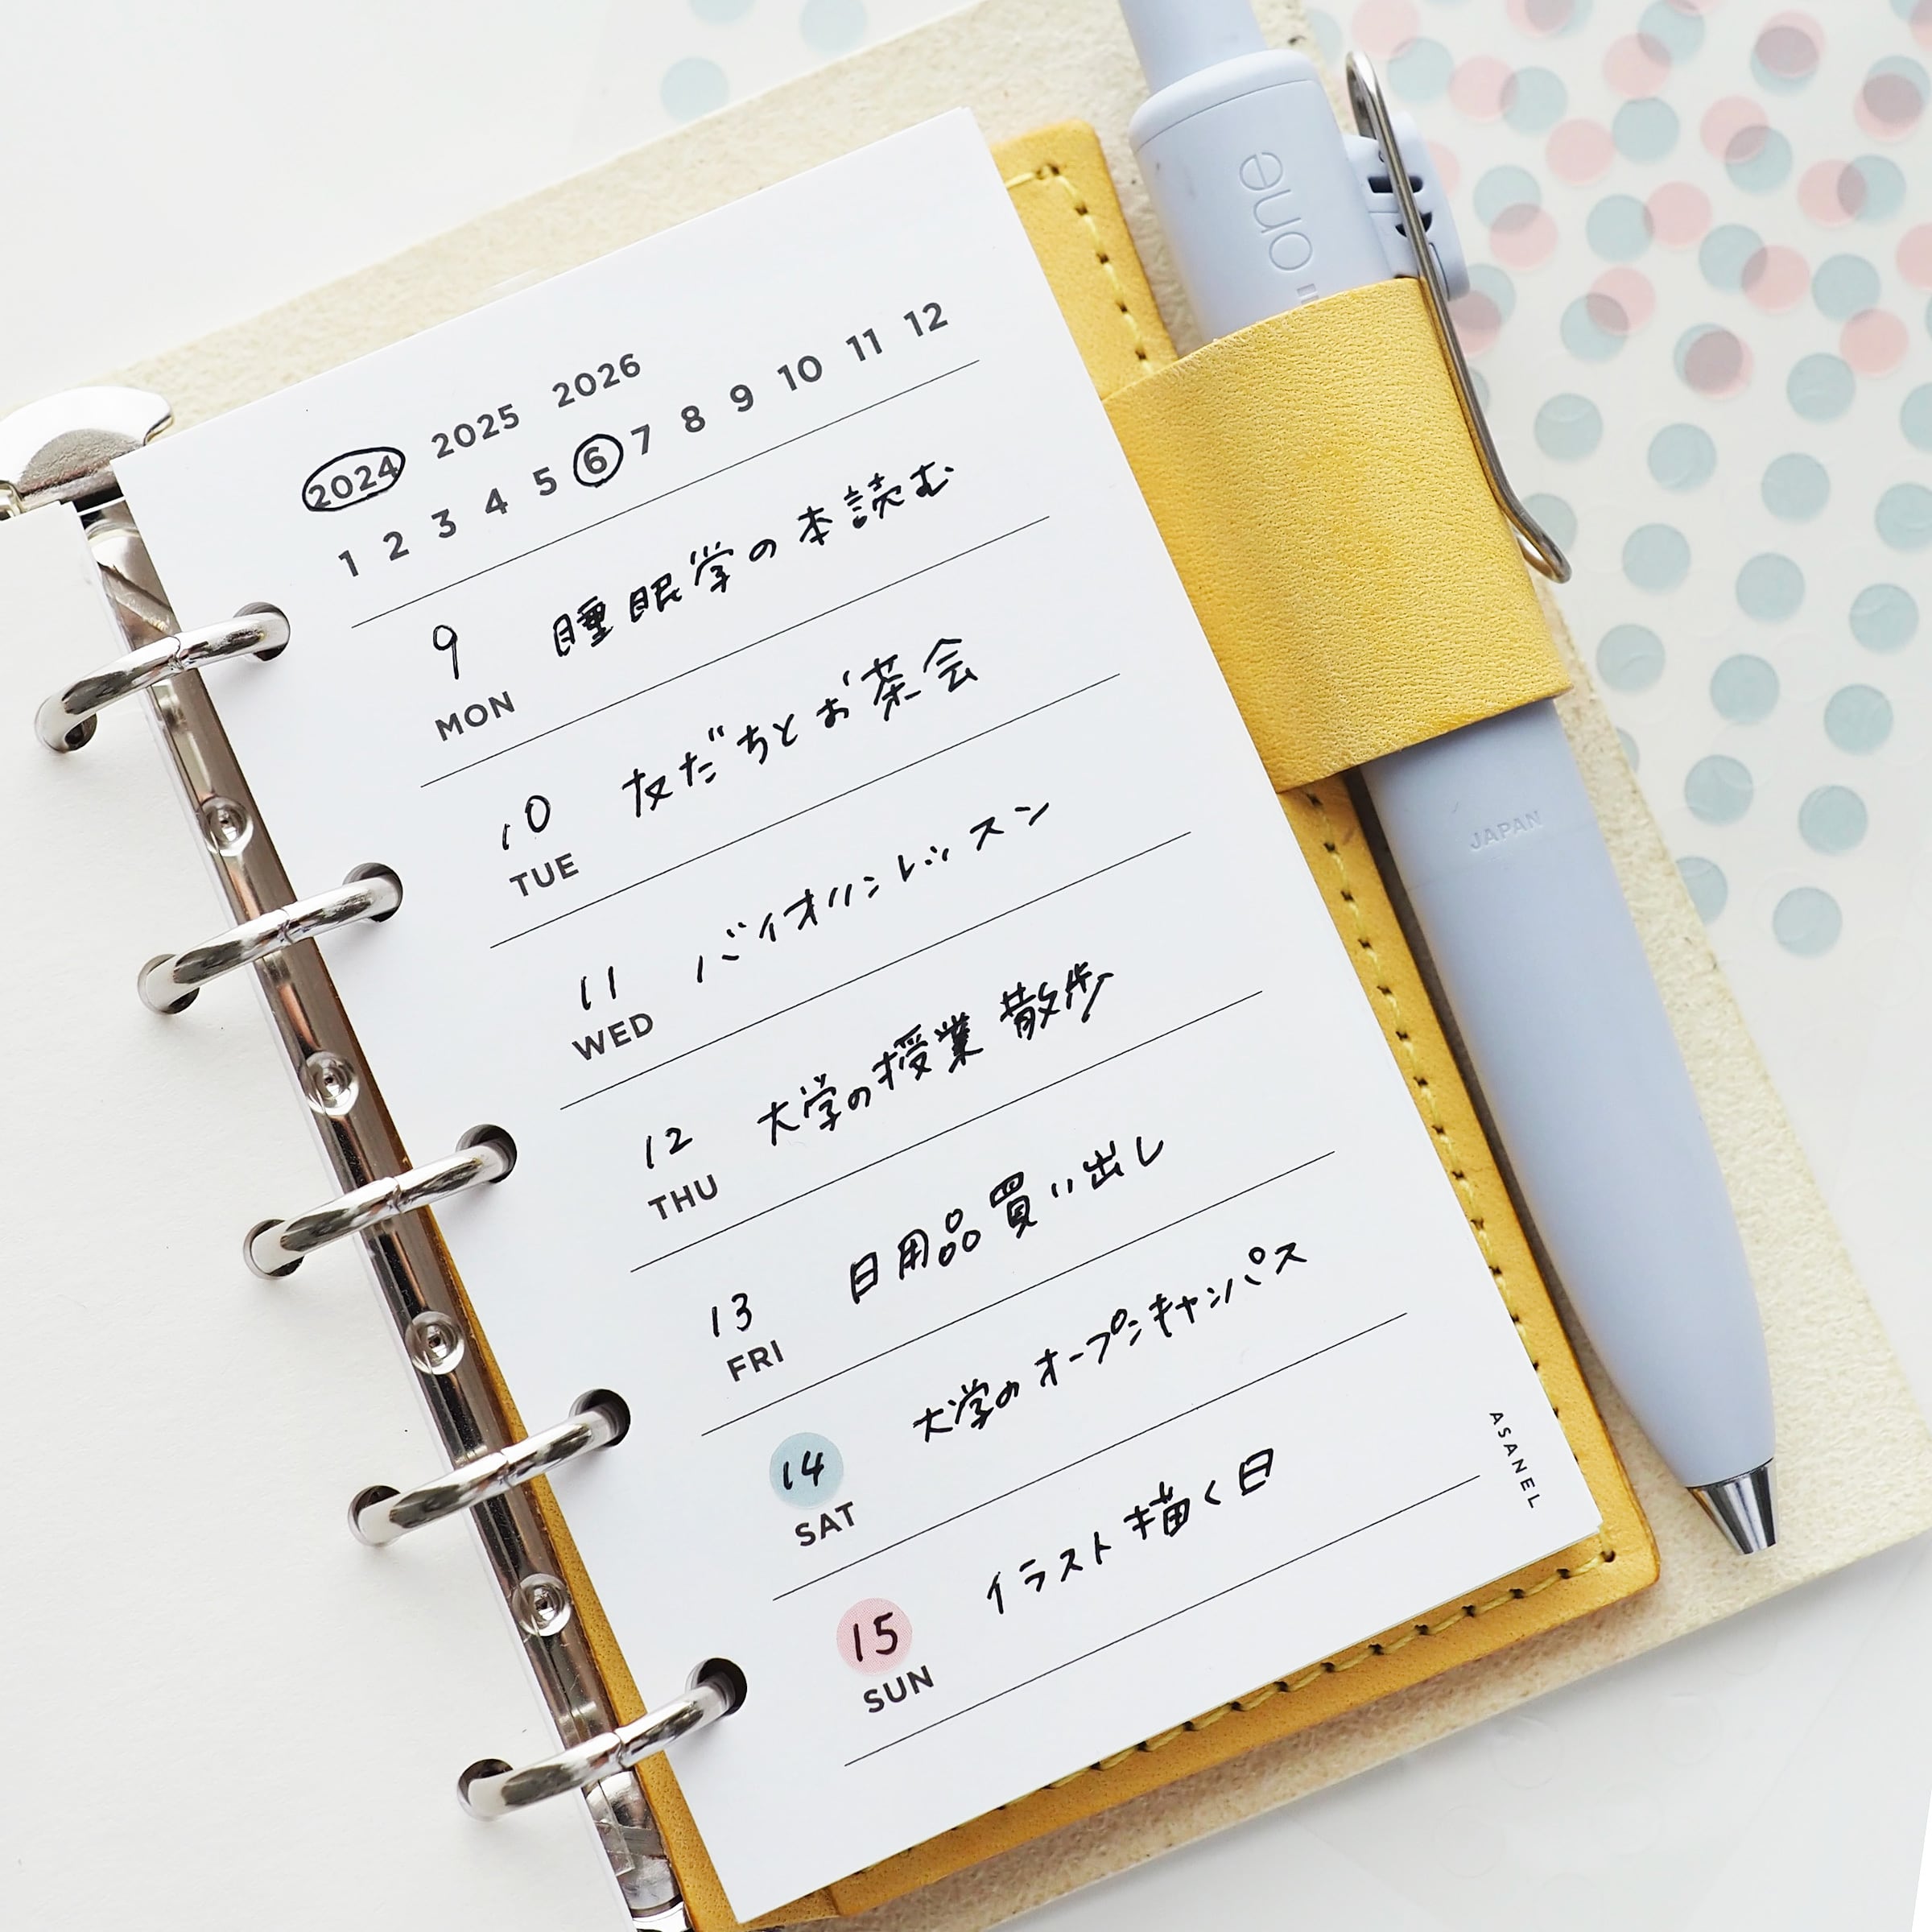 2024 2025 2026
1 2 3 4 5 6 7 8 9 10 11 12
9 睡眠学の本読む
MON
10 友だちとお茶会
TUE
11 バイオリンレッスン
WED
12 大学の授業 散歩
THU
13 日用品買い出し
FRI
14 大学のオープンキャンパス
SAT
15 イラスト描く日
SUN
ASANEL
one
JAPAN